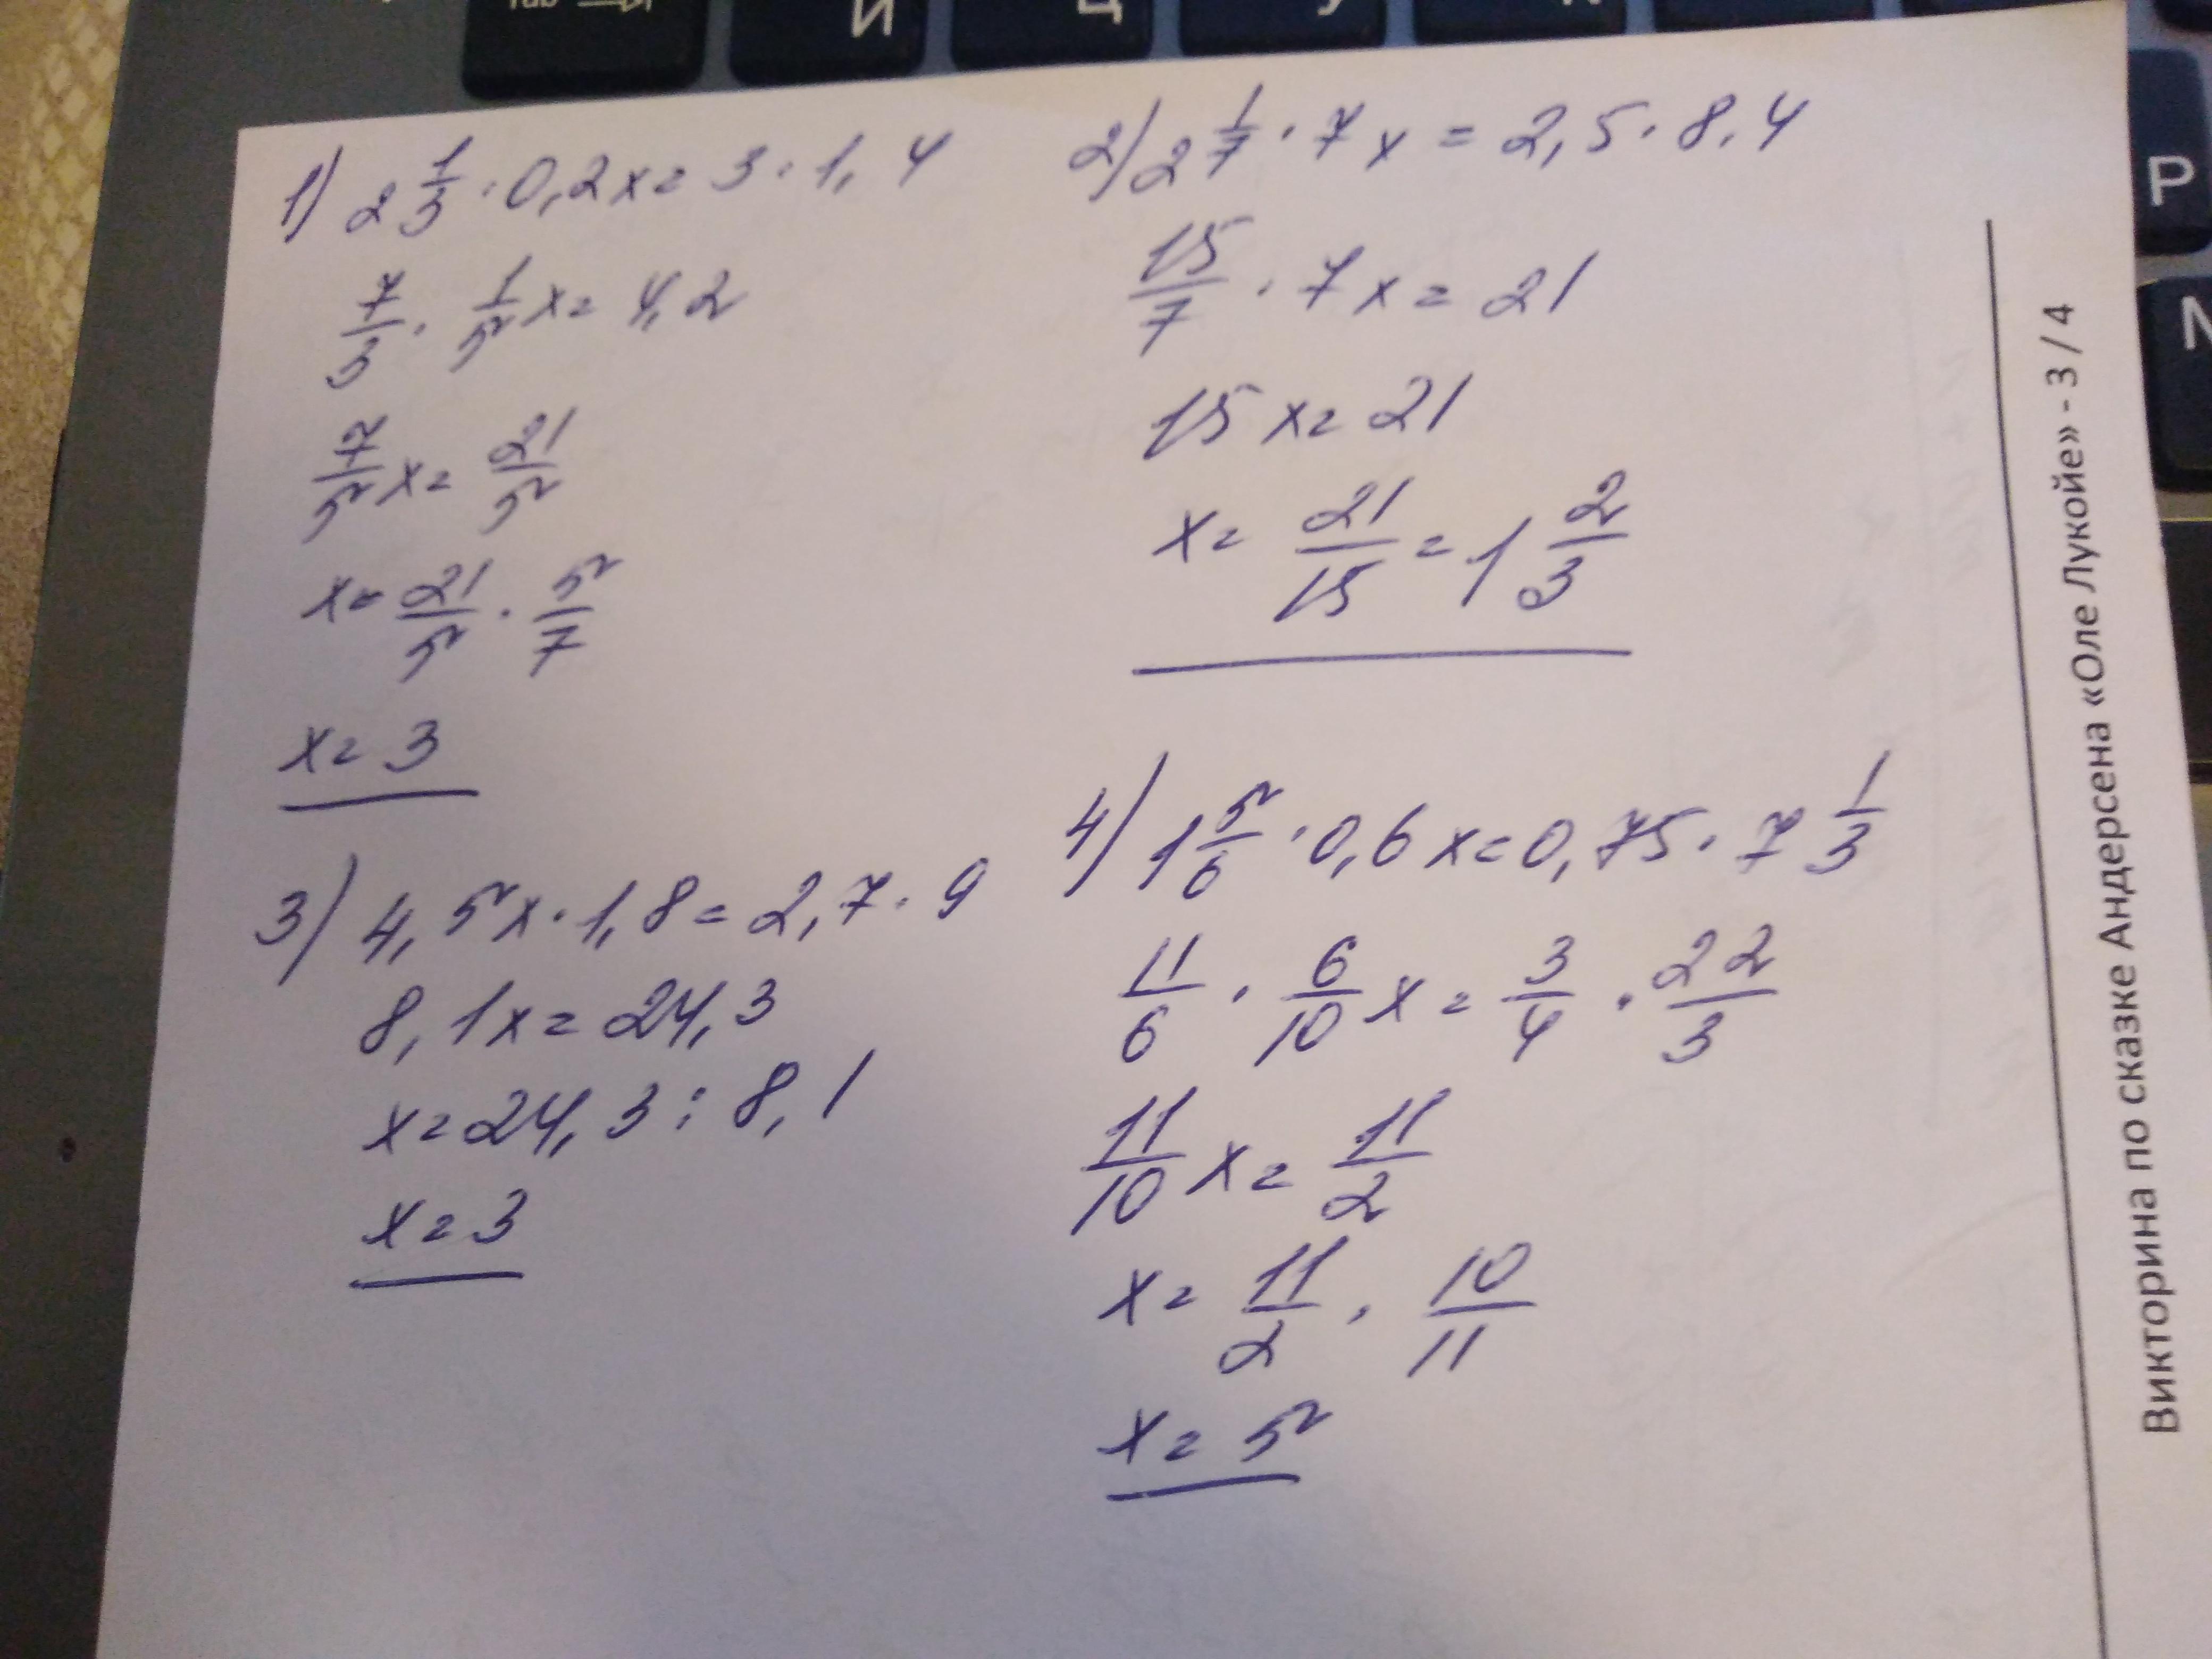 Tab И Ц У К
1) 2 1/3 · 0,2x = 3 · 1,4
7/3 · 1/5 x = 4,2
7/5 x = 21/5
x = 21/5 · 5/7
x = 3
2) 2 1/7 · 7x = 2,5 · 8,4
15/7 · 7x = 21
15x = 21
x = 21/15 = 1 2/3
3) 4,5x · 1,8 = 2,7 · 9
8,1x = 24,3
x = 24,3 : 8,1
x = 3
4) 1 5/6 · 0,6x = 0,75 · 7 1/3
11/6 · 6/10 x = 3/4 · 22/3
11/10 x = 11/2
x = 11/2 · 10/11
x = 5
Викторина по сказке Андерсена «Оле Лукойе» - 3 / 4
Р